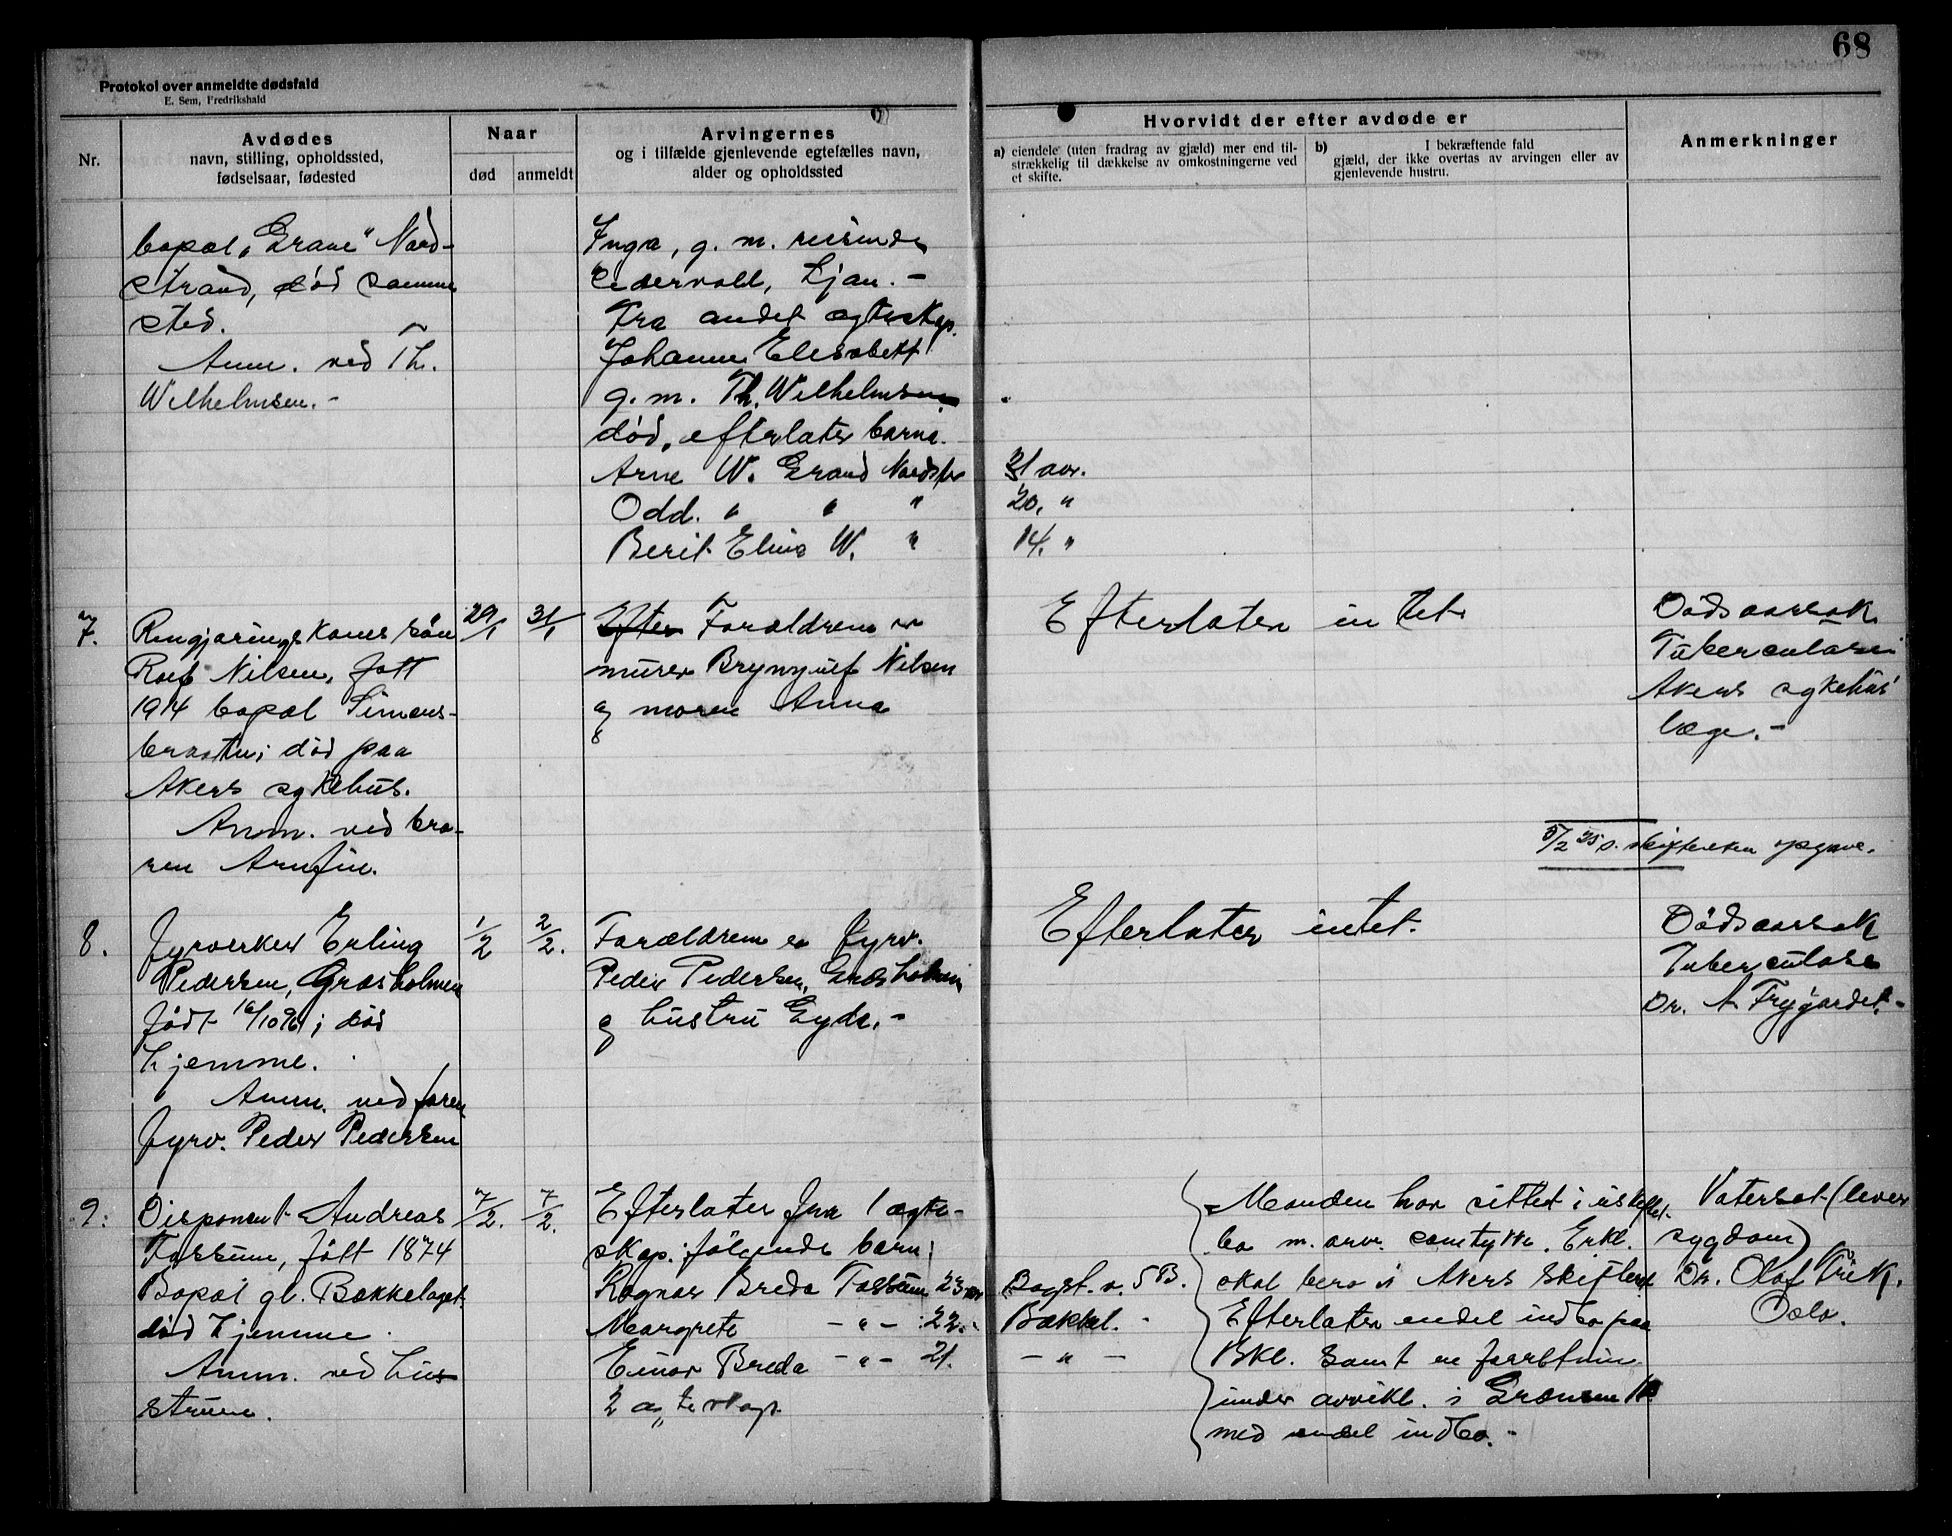 68
Protokol over anmeldte dødsfald
E. Sem, Fredrikshald
Nr.
Avdødes
navn, stilling, opholdssted,
fødselsaar, fødested
Naar
død
anmeldt
Arvingernes
og i tilfælde gjenlevende egtefælles navn,
alder og opholdssted
Hvorvidt der efter avdøde er
a) eiendele (uten fradrag av gjæld) mer end til-
strækkelig til dækkelse av omkostningerne ved
et skifte.
b) I bekræftende fald
gjæld, der ikke overtas av arvingen eller av
gjenlevende hustru.
Anmerkninger
bopæl "Grane" Nord-
strand, død samme
sted.
Anm. ved Th.
Wilhelmsen.-
Inga, g. m. reisende
Cedervall, Ljan.-
Fra andet ægteskap.
Johanne Elisabett
g. m. Th. Wilhelmsen
død, efterlater barna.
Arne W. Grand Nordstr 21 aar.
Odd. " " " 20. "
Berit Elina W. " 14. "
7.
Rengjøringskones søn
Rolf Nilsen, født
1914 bopæl Simens-
braaten; død paa
Akers sykehus.
Anm. ved bro-
ren Arnfin.
29/1
31/1
Efter Forældrene er
murer Brynjulf Nilsen
og moren Anna
Efterlater intet
Dødsaarsak
Tuberculose
Akers sykehus'
læge.-
5/2 25 s. skifteretten opgave.
8.
Fyrverker Erling
Pedersen, Græsholmen
født 16/10 96; død
hjemme.
Anm. ved faren
fyrv. Peder Pedersen
1/2
2/2.
Forældrene er fyrv.
Peder Pedersen, Græsholmen
og hustru Eyde.-
Efterlater intet.
Dødsaarsak
Tuberculose
Dr. A Frygardet.-
9.
Disponent Andreas
Fossum, født 1874
Bopæl gl. Bækkelaget
død hjemme.
Anm. ved hus-
truen.
7/2.
7/2.
Efterlater fra 1 ægte-
skap: følgende barn:
Ragnar Breda Fossum 23 aar Bogst. v. 5 B.
Margrete -"- 22.- Bækkel.-
Einar Breda -"- 21. -"-
2 ægteskap.
Manden har sittet i uskiftet
bo m. arv. samtykke. Erkl.
skal bero i Akers skifteret
Efterlater endel indbo paa
Bkl. samt en forretning
under avvikl. i Grænsen
med endel indbo.-
Vatersot (lever
sygdom)
Dr. Olaf Frick.
Oslo.